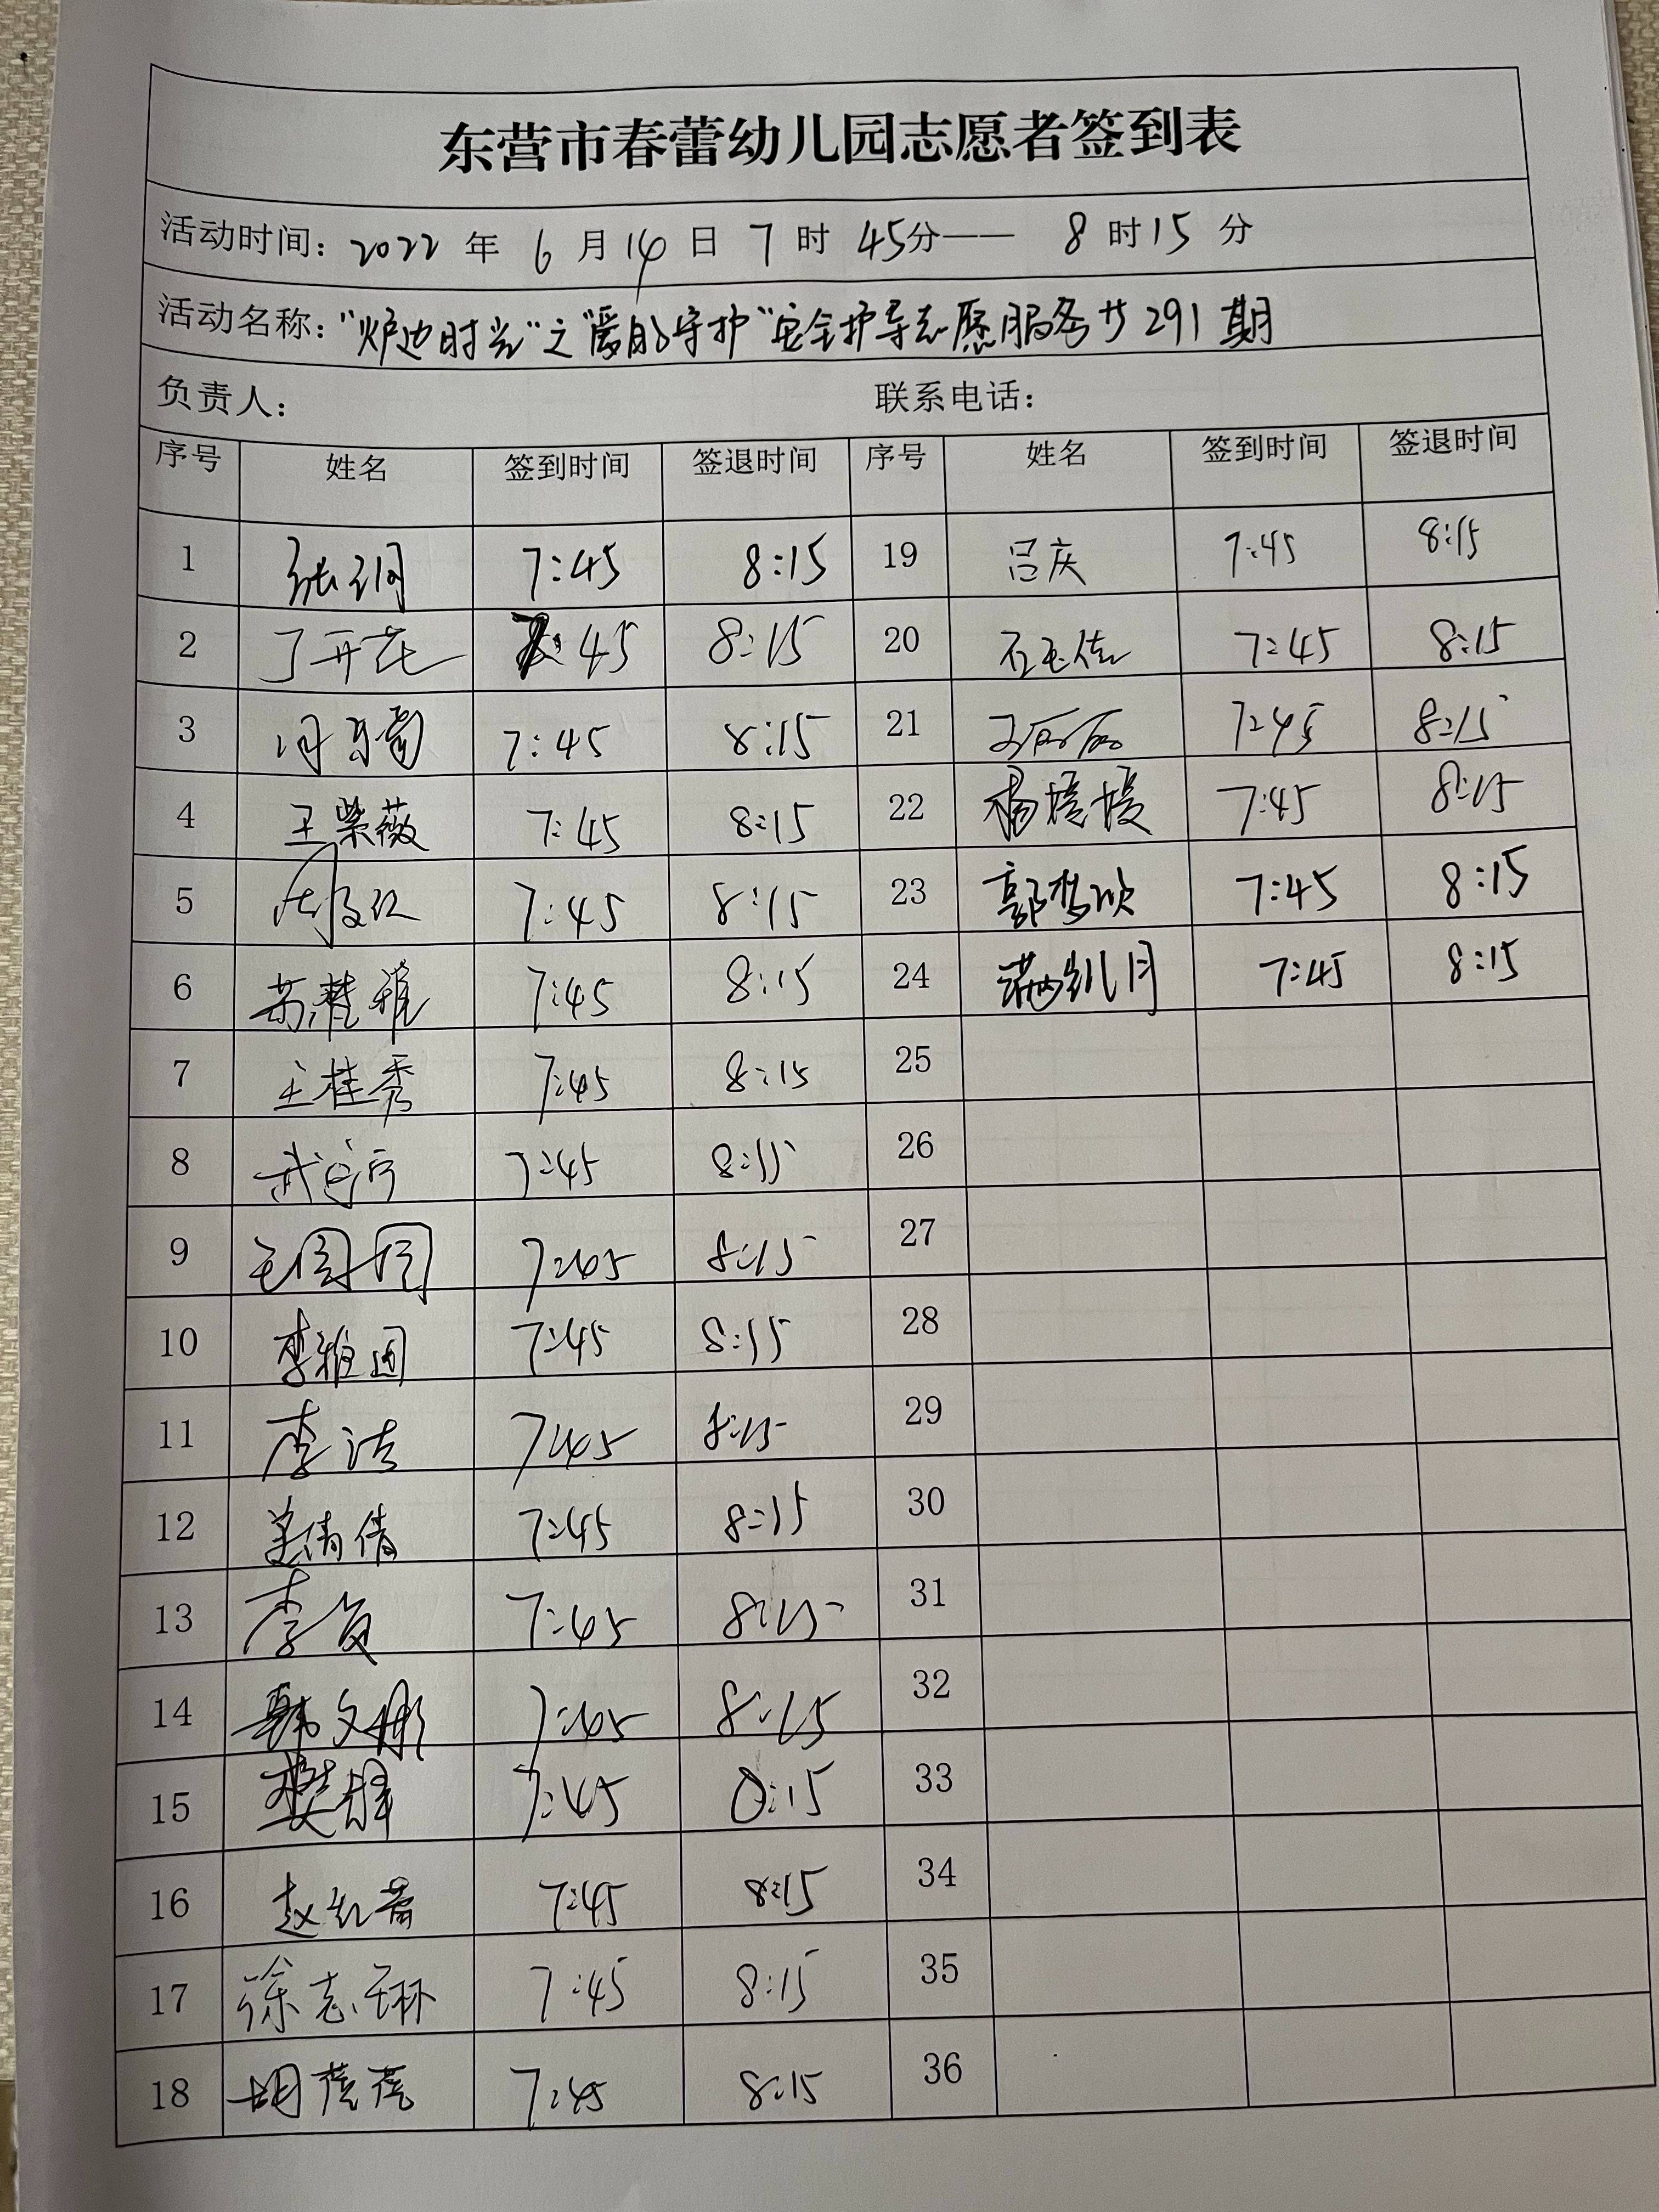 东营市春蕾幼儿园志愿者签到表
活动时间：2022 年 6 月 14 日 7 时 45分—— 8 时 15 分
活动名称："炉边时光"之"暖的守护"安全护导志愿服务 291 期
负责人： 联系电话：
序号 姓名 签到时间 签退时间 序号 姓名 签到时间 签退时间
1 7:45 8:15 19 吕庆 7:45 8:15
2 丁开花 7:45 8:15 20 7:45 8:15
3 7:45 8:15 21 王丽丽 7:45 8:15
4 王紫薇 7:45 8:15 22 杨媛媛 7:45 8:15
5 7:45 8:15 23 郭梦欣 7:45 8:15
6 苏楚雅 7:45 8:15 24 满凯月 7:45 8:15
7 王桂秀 7:45 8:15 25
8 7:45 8:15 26
9 7:45 8:15 27
10 7:45 8:15 28
11 李洁 7:45 8:15 29
12 姜倩倩 7:45 8:15 30
13 7:45 8:15 31
14 7:45 8:15 32
15 7:45 8:15 33
16 7:45 8:15 34
17 徐志琳 7:45 8:15 35
18 7:45 8:15 36